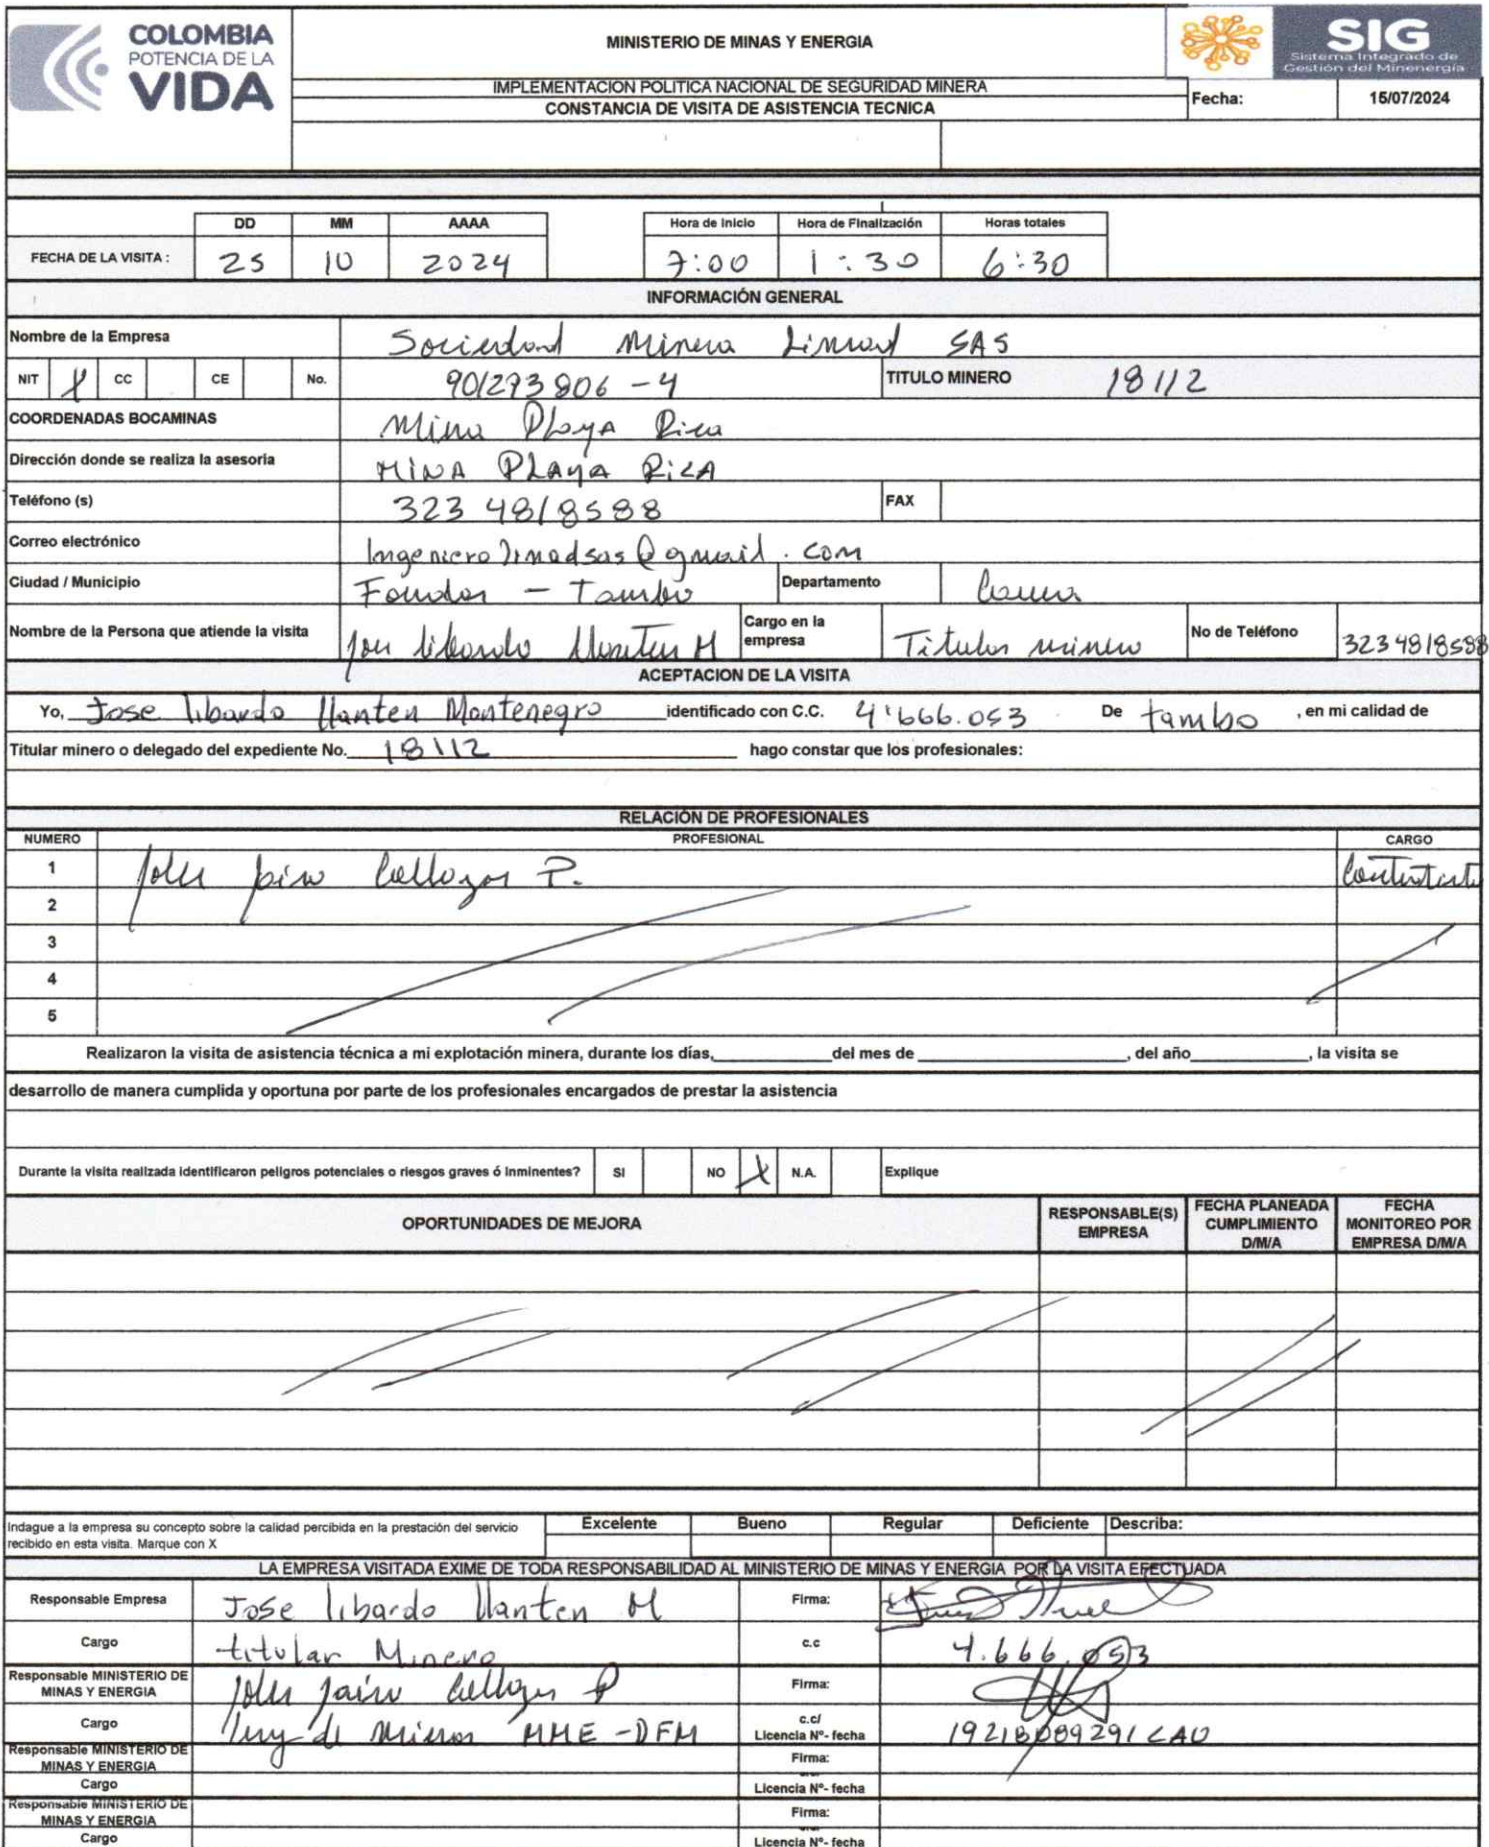 COLOMBIA
POTENCIA DE LA
VIDA
MINISTERIO DE MINAS Y ENERGIA
SIG
Sistema Integrado de
Gestión del Minenergía
IMPLEMENTACION POLITICA NACIONAL DE SEGURIDAD MINERA
CONSTANCIA DE VISITA DE ASISTENCIA TECNICA
Fecha: 15/07/2024
DD MM AAAA Hora de Inicio Hora de Finalización Horas totales
FECHA DE LA VISITA : 25 10 2024 7:00 1:30 6:30
INFORMACIÓN GENERAL
Nombre de la Empresa Sociedad Minera Limad SAS
NIT X CC CE No. 901273806-4 TITULO MINERO 18112
COORDENADAS BOCAMINAS Mina Playa Rica
Dirección donde se realiza la asesoria MINA PLAYA RICA
Teléfono (s) 323 4818588 FAX
Correo electrónico Ingenierolimadsas@gmail.com
Ciudad / Municipio Fondas - Tambo Departamento Cauca
Nombre de la Persona que atiende la visita Jose libardo Llanten M Cargo en la empresa Titular minero No de Teléfono 3234818588
ACEPTACION DE LA VISITA
Yo, Jose libardo llanten Montenegro identificado con C.C. 4'666.053 De tambo , en mi calidad de
Titular minero o delegado del expediente No. 18112 hago constar que los profesionales:
RELACIÓN DE PROFESIONALES
NUMERO PROFESIONAL CARGO
1 Jairo Collazos P. Contratista
2
3
4
5
Realizaron la visita de asistencia técnica a mi explotación minera, durante los días, del mes de , del año , la visita se
desarrollo de manera cumplida y oportuna por parte de los profesionales encargados de prestar la asistencia
Durante la visita realizada identificaron peligros potenciales o riesgos graves ó inminentes? SI NO X N.A. Explique
OPORTUNIDADES DE MEJORA RESPONSABLE(S) EMPRESA FECHA PLANEADA CUMPLIMIENTO D/M/A FECHA MONITOREO POR EMPRESA D/M/A
Indague a la empresa su concepto sobre la calidad percibida en la prestación del servicio recibido en esta visita. Marque con X Excelente Bueno Regular Deficiente Describa:
LA EMPRESA VISITADA EXIME DE TODA RESPONSABILIDAD AL MINISTERIO DE MINAS Y ENERGIA POR LA VISITA EFECTUADA
Responsable Empresa Jose libardo llanten M Firma:
Cargo titular Minero c.c 4.666.053
Responsable MINISTERIO DE MINAS Y ENERGIA Jairo Collazos P Firma:
Cargo Ing de Minas MME-DFM c.c/ Licencia Nº- fecha 19218089291 CAU
Responsable MINISTERIO DE MINAS Y ENERGIA Firma:
Cargo Licencia Nº- fecha
Responsable MINISTERIO DE MINAS Y ENERGIA Firma:
Cargo Licencia Nº- fecha